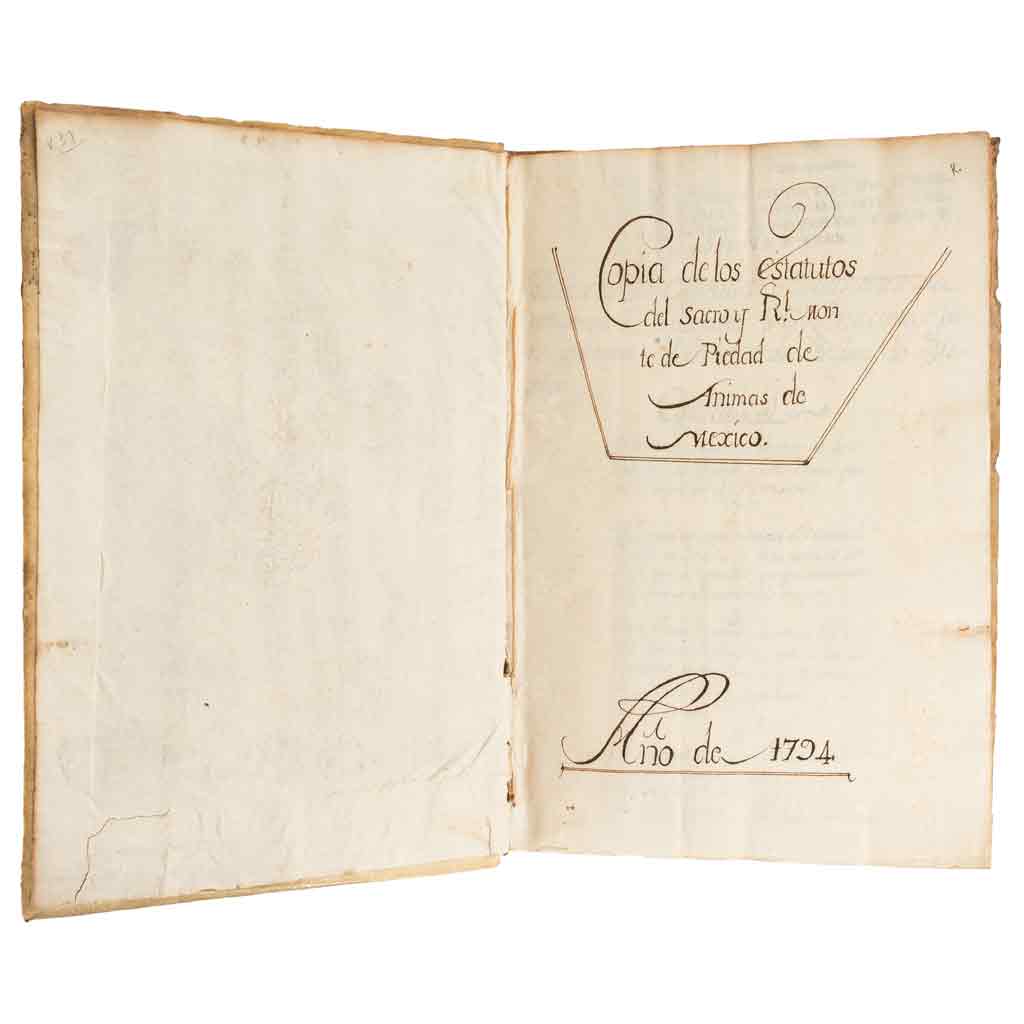 Copia de los estatutos
del sacro y Rl. Mon
te de Piedad de
Animas de
Mexico.
Año de 1794.